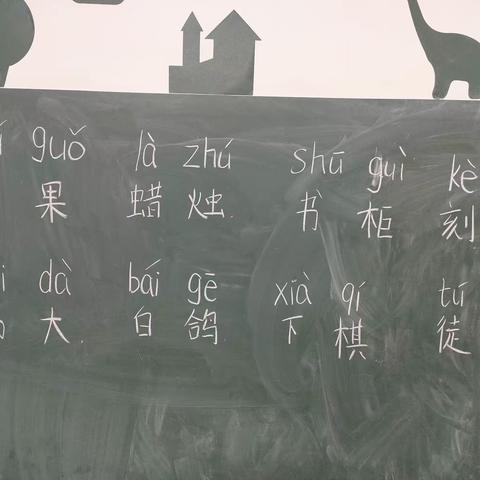 guǒ là zhú shū guì kè
果 蜡烛 书柜 刻
dà bái gē xià qí tú
大 白鸽 下棋 徒